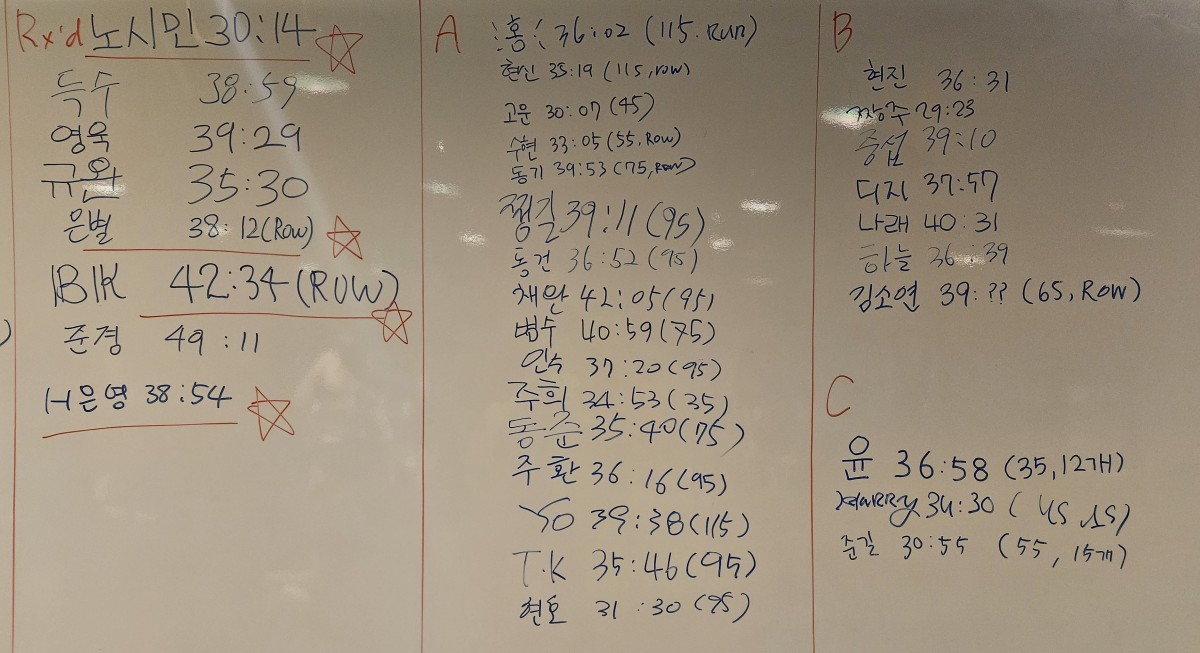 Rx'd 노시민 30:14
득수 38:59
영욱 39:29
규완 35:30
은별 38:12(Row)
BK 42:34(ROW)
준경 49:11
H은영 38:54
A
홍 36:02 (115.Run)
현신 35:19 (115, row)
고운 30:07 (45)
수현 33:05 (55, Row)
동기 39:53 (75, Row)
찡길 39:11 (95)
동건 36:52 (95)
채완 42:05 (95)
병수 40:59 (75)
인수 37:20 (95)
주희 34:53 (35)
동준 35:40 (75)
주환 36:16 (95)
YO 39:38 (115)
T.K 35:46 (95)
현호 31:30 (95)
B
현진 36:31
짱주 29:23
중섭 39:10
디지 37:57
나래 40:31
하늘 36:39
김소연 39:?? (65, Row)
C
윤 36:58 (35, 12개)
34:30 (45
준길 30:55 (55, 15개)